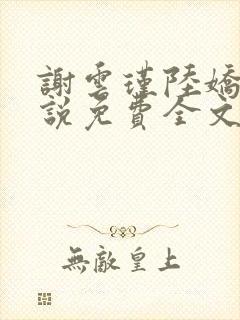 謝雲瑾陸嬌
說免費全文
無敵皇上